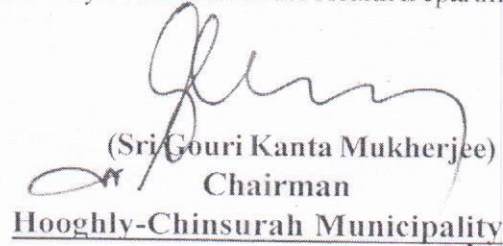 (Sri Gouri Kanta Mukherjee)
Chairman
Hooghly-Chinsurah Municipality